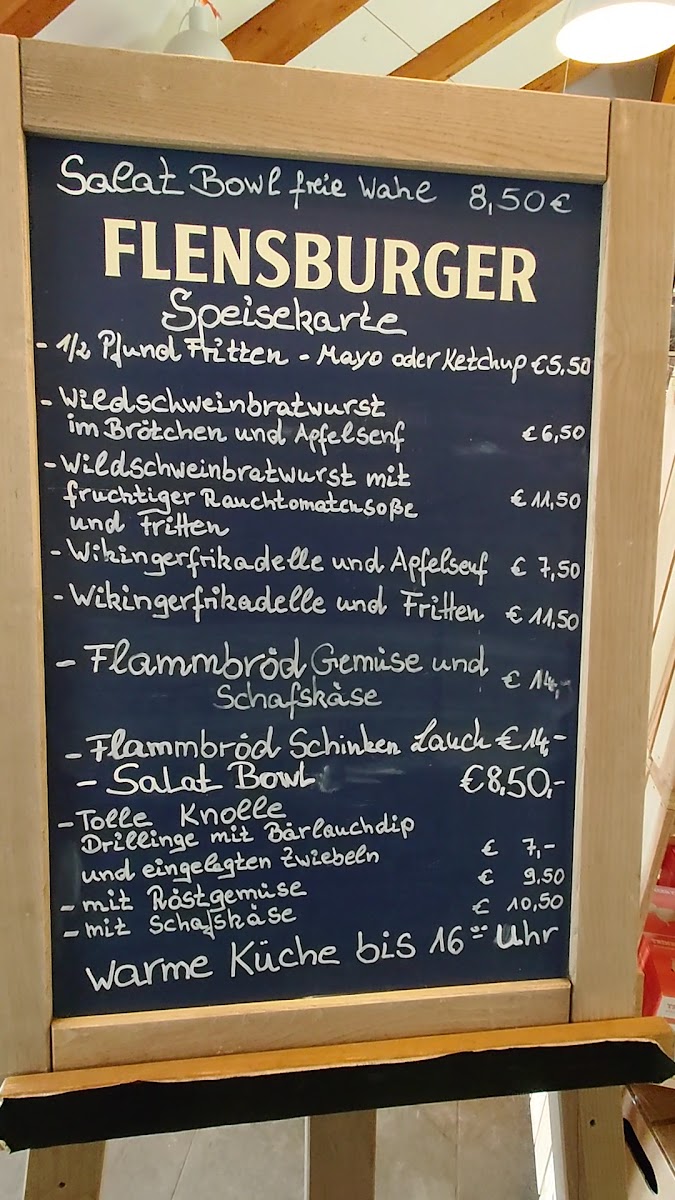 Salat Bowl freie Wahl 8,50 €
FLENSBURGER
Speisekarte
- 1/2 Pfund Fritten - Mayo oder Ketchup € 5,50
- Wildschweinbratwurst
im Brötchen und Apfelsenf € 6,50
- Wildschweinbratwurst mit
fruchtiger Rauchtomatensoße € 11,50
und Fritten
- Wikingerfrikadelle und Apfelsenf € 7,50
- Wikingerfrikadelle und Fritten € 11,50
- Flammbröd Gemüse und
Schafskäse € 14,-
- Flammbröd Schinken Lauch € 14,-
- Salat Bowl €8,50,-
- Tolle Knolle
Drillinge mit Bärlauchdip
und eingelegten Zwiebeln € 7,-
- mit Röstgemüse € 9,50
- mit Schafskäse € 10,50
warme Küche bis 16⁰⁰ Uhr